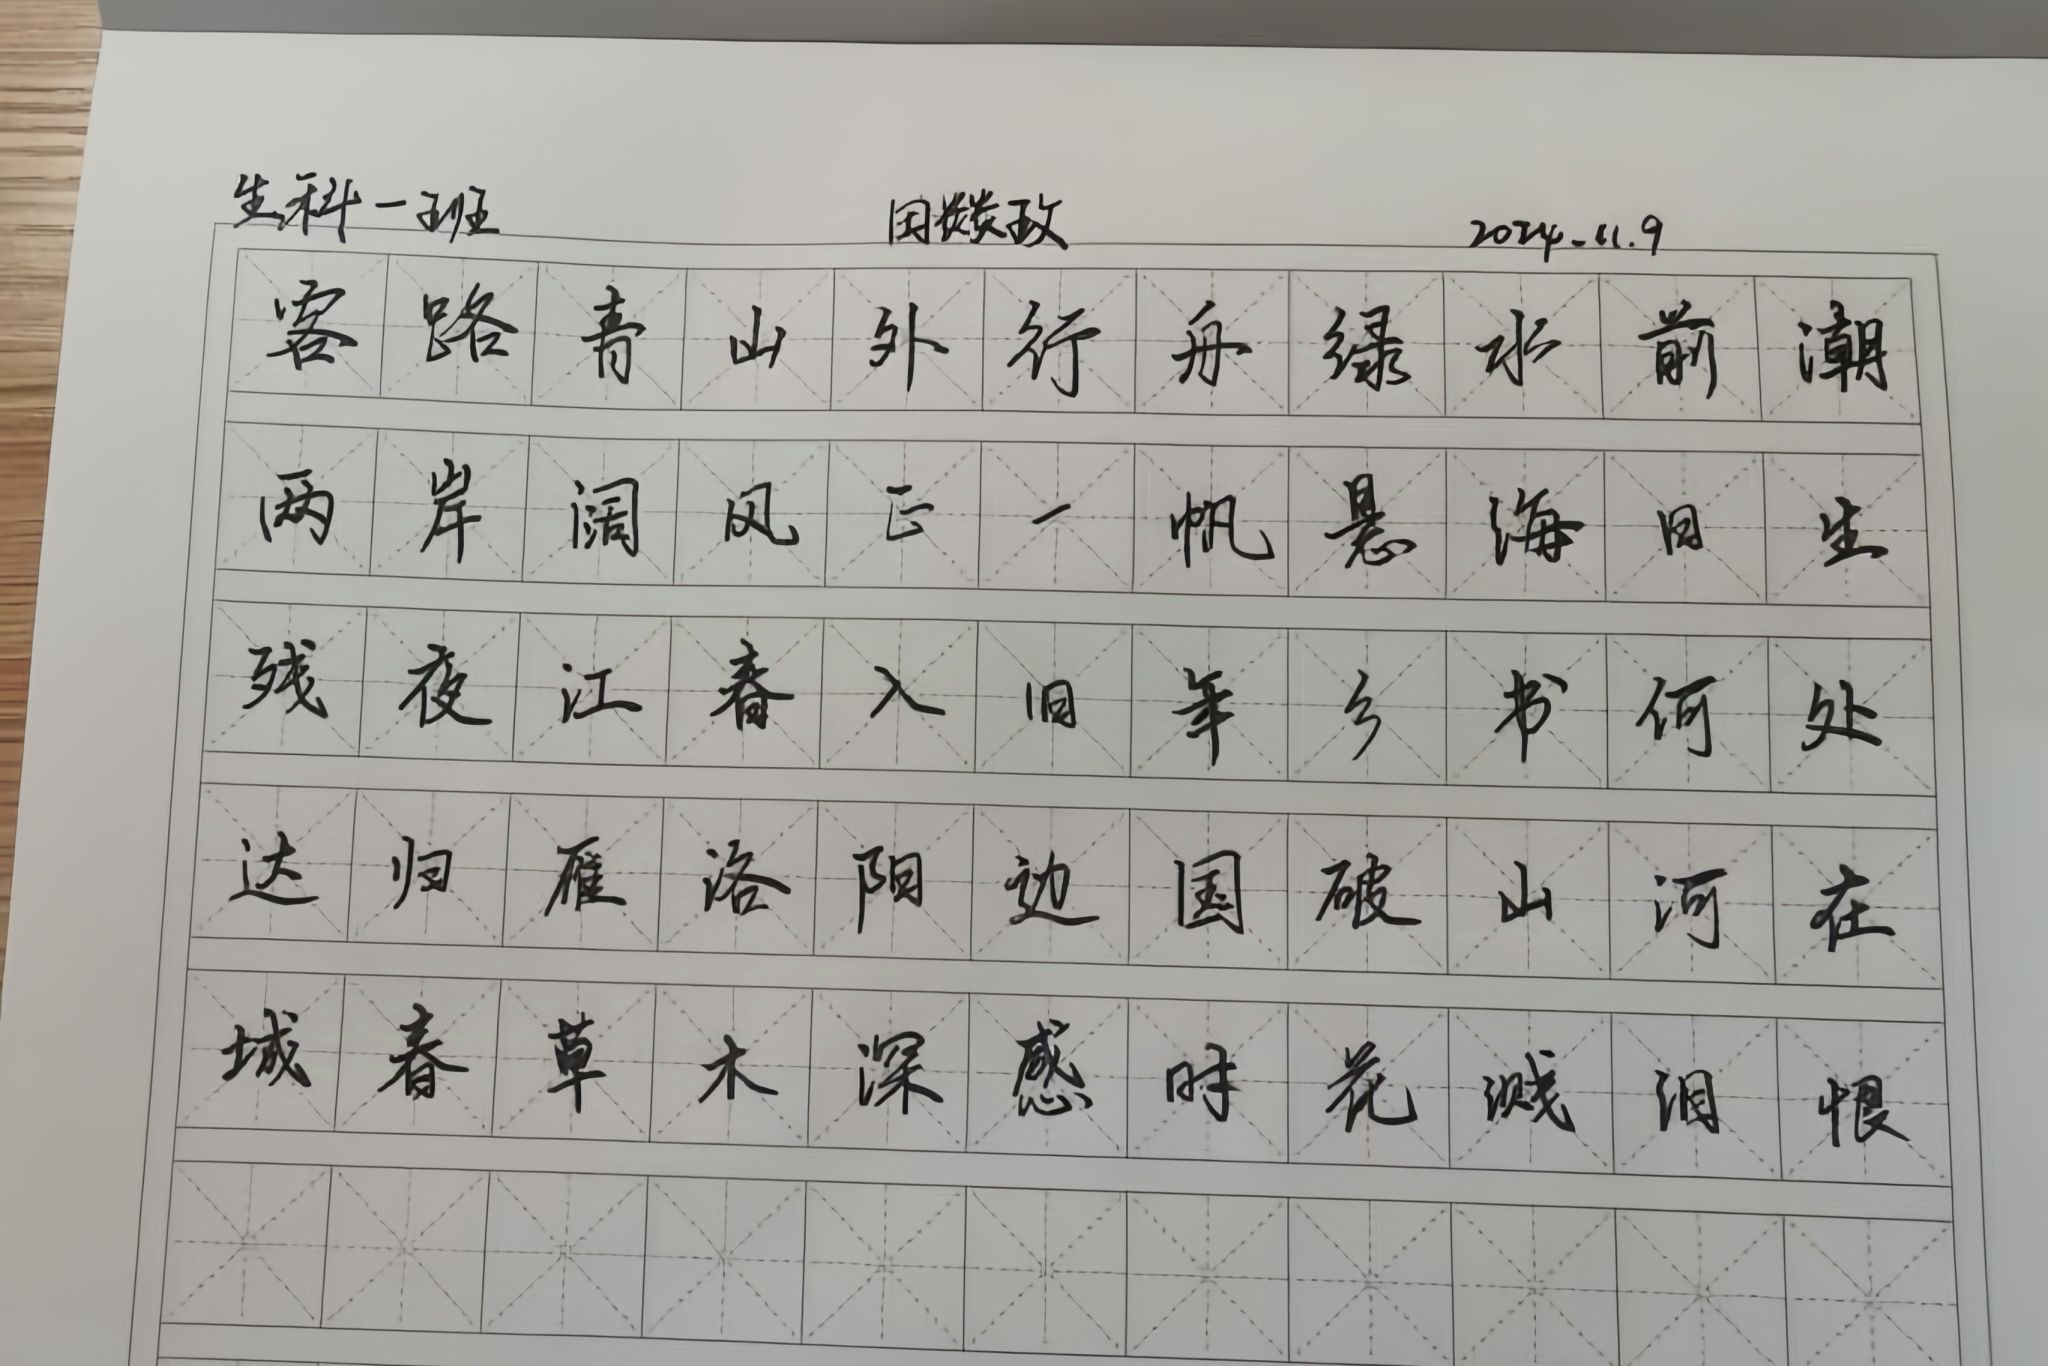 生科一班 2024.11.9
客路青山外行舟绿水前潮
两岸阔风正一帆悬海日生
残夜江春入旧年乡书何处
达归雁洛阳边国破山河在
城春草木深感时花溅泪恨